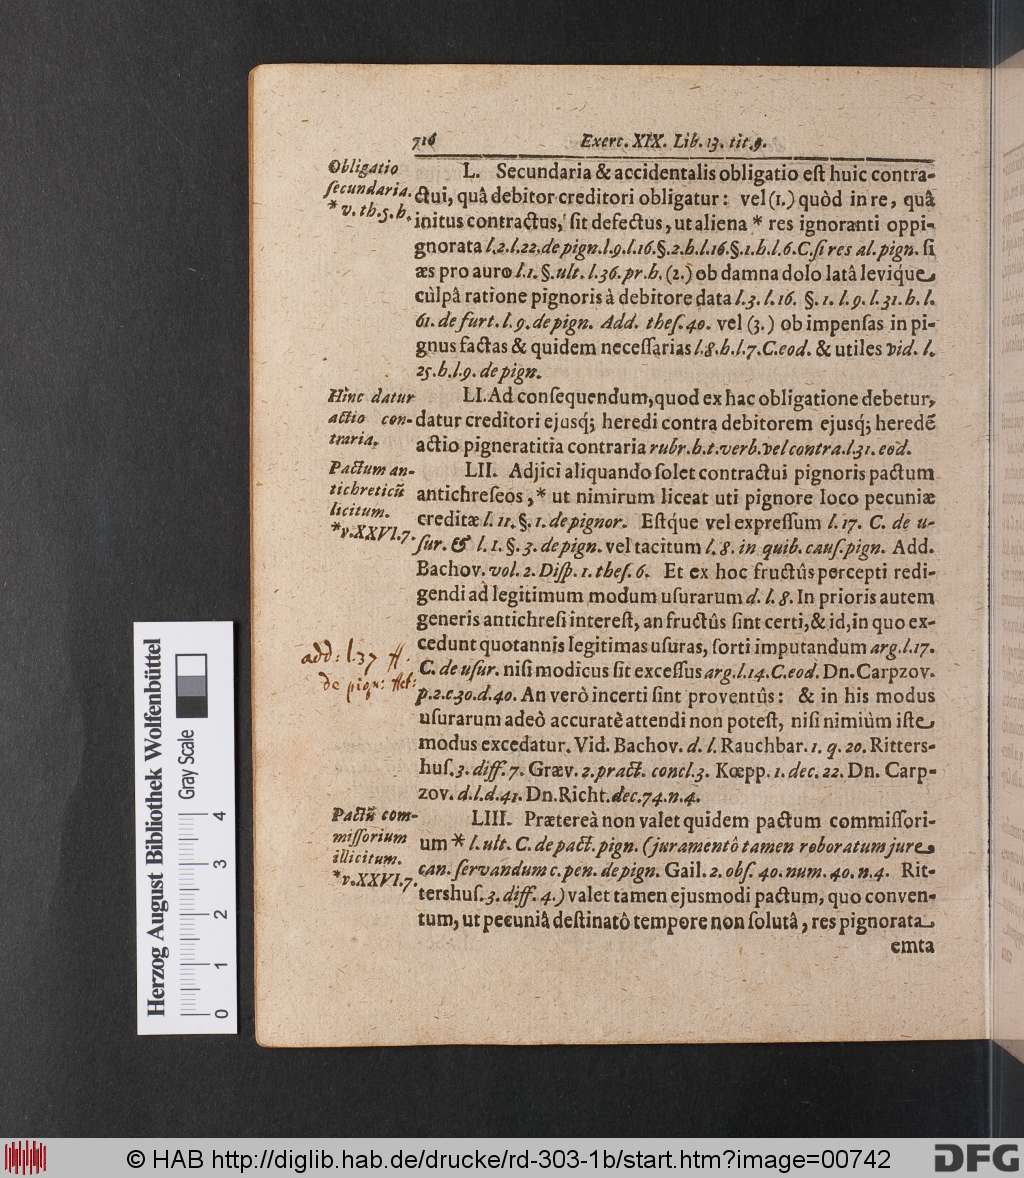 716 Exerc. XIX. Lib. 13. tit. 9.
Obligatio
secundaria.
* v. th. 5. h.
L. Secundaria & accidentalis obligatio est huic contra-
ctui, quâ debitor creditori obligatur: vel (1.) quòd in re, quâ
initus contractus, sit defectus, ut aliena * res ignoranti oppi-
gnorata l. 2. l. 22. de pign. l. 9. l. 16. §. 2. h. l. 16. §. 1. h. l. 6. C. si res al. pign. si
æs pro auro l. 1. §. ult. l. 36. pr. h. (2.) ob damna dolo latâ levique
culpâ ratione pignoris à debitore data l. 3. l. 16. §. 1. l. 9. l. 31. h. l.
61. de furt. l. 9. de pign. Add. thes. 40. vel (3.) ob impensas in pi-
gnus factas & quidem necessarias l. 8. h. l. 7. C. eod. & utiles vid. l.
25. h. l. 9. de pign.
Hinc datur
actio con-
traria.
LI. Ad consequendum, quod ex hac obligatione debetur,
datur creditori ejusq; heredi contra debitorem ejusq; heredẽ
actio pigneratitia contraria rubr. h. t. verb. vel contra. l. 31. eod.
Pactum an-
tichreticũ
licitum.
*v. XXVI. 7.
LII. Adjici aliquando solet contractui pignoris pactum
antichreseos, * ut nimirum liceat uti pignore loco pecuniæ
creditæ l. 11. §. 1. de pignor. Estque vel expressum l. 17. C. de u-
sur. & l. 1. §. 3. de pign. vel tacitum l. 8. in quib. caus. pign. Add.
Bachov. vol. 2. Disp. 1. thes. 6. Et ex hoc fructûs percepti redi-
gendi ad legitimum modum usurarum d. l. 8. In prioris autem
generis antichresi interest, an fructûs sint certi, & id, in quo ex-
cedunt quotannis legitimas usuras, sorti imputandum arg. l. 17.
C. de usur. nisi modicus sit excessus arg. l. 14. C. eod. Dn. Carpzov.
p. 2. c. 30. d. 40. An verò incerti sint proventûs: & in his modus
usurarum adeò accuratè attendi non potest, nisi nimiùm iste
modus excedatur. Vid. Bachov. d. l. Rauchbar. 1. q. 20. Ritters-
hus. 3. diff. 7. Græv. 2. pract. concl. 3. Kœpp. 1. dec. 22. Dn. Carp-
zov. d. l. d. 41. Dn. Richt. dec. 74. n. 4.
add: l. 37 ff.
de pign: act:
Pactũ com-
missorium
illicitum.
*v. XXVI. 7.
LIII. Prætereà non valet quidem pactum commissori-
um * l. ult. C. de pact. pign. (juramentô tamen roboratum jure
can. servandum c. pen. de pign. Gail. 2. obs. 40. num. 40. n. 4. Rit-
tershus. 3. diff. 4.) valet tamen ejusmodi pactum, quo conven-
tum, ut pecuniâ destinatô tempore non solutâ, res pignorata
emta
Herzog August Bibliothek Wolfenbüttel
Gray Scale
0 1 2 3 4
© HAB http://diglib.hab.de/drucke/rd-303-1b/start.htm?image=00742
DFG